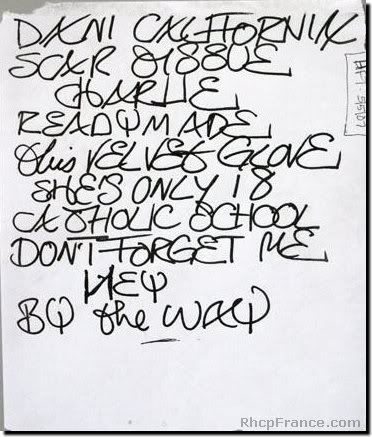 DANI CALIFORNIA
SCAR TISSUE
CHARLIE
READYMADE
this VELVET GLOVE
SHE'S ONLY 18
CATHOLIC SCHOOL
DON'T FORGET ME
HEY
BY the WAY
RhcpFrance.com